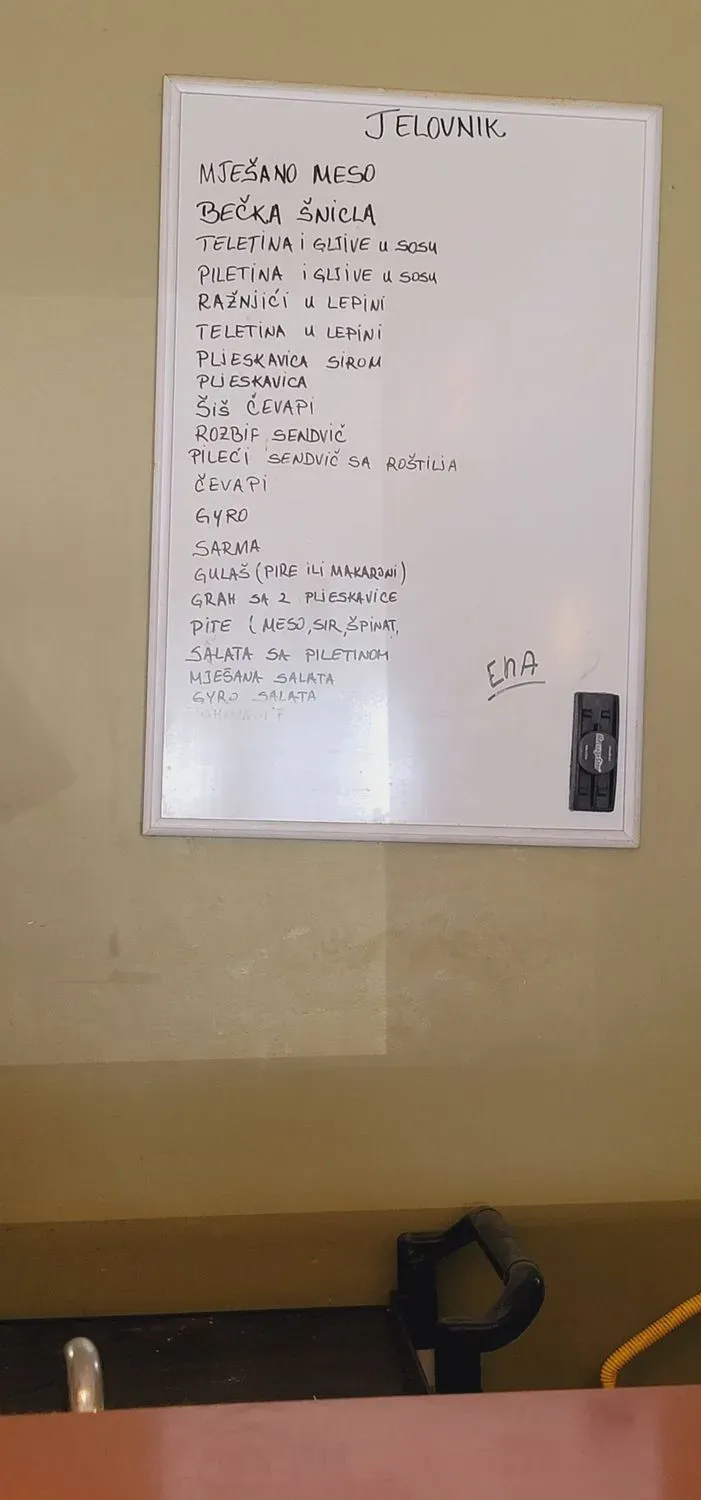 JELOVNIK
MJEŠANO MESO
BEČKA ŠNICLA
TELETINA i GLJIVE u SOSU
PILETINA i GLJIVE u SOSU
RAŽNJIĆI u LEPINI
TELETINA u LEPINI
PLJESKAVICA SIROM
PLJESKAVICA
ŠIŠ ĆEVAPI
ROZBIF SENDVIČ
PILEĆI SENDVIČ SA ROŠTILJA
ČEVAPI
GYRO
SARMA
GULAŠ (PIRE ILI MAKARONI)
GRAH SA 2 PLJESKAVICE
PITE ( MESO, SIR, ŠPINAT,
SALATA SA PILETINOM
MJEŠANA SALATA
GYRO SALATA
ENA